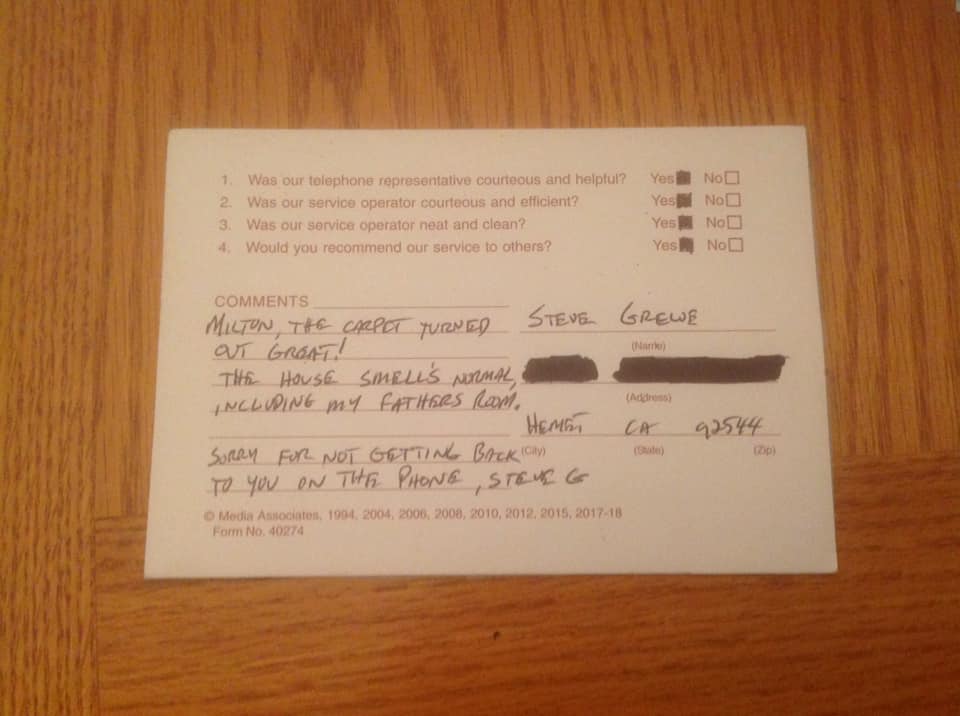 1. Was our telephone representative courteous and helpful? Yes No
2. Was our service operator courteous and efficient? Yes No
3. Was our service operator neat and clean? Yes No
4. Would you recommend our service to others? Yes No
COMMENTS
MILTON, THE CARPET TURNED
OUT GREAT!
THE HOUSE SMELL'S NORMAL,
INCLUDING MY FATHERS ROOM.
SORRY FOR NOT GETTING BACK
TO YOU ON THE PHONE, STEVE G
STEVE GREWE
(Name)
(Address)
HEMET CA 92544
(City) (State) (Zip)
© Media Associates, 1994, 2004, 2006, 2008, 2010, 2012, 2015, 2017-18
Form No. 40274